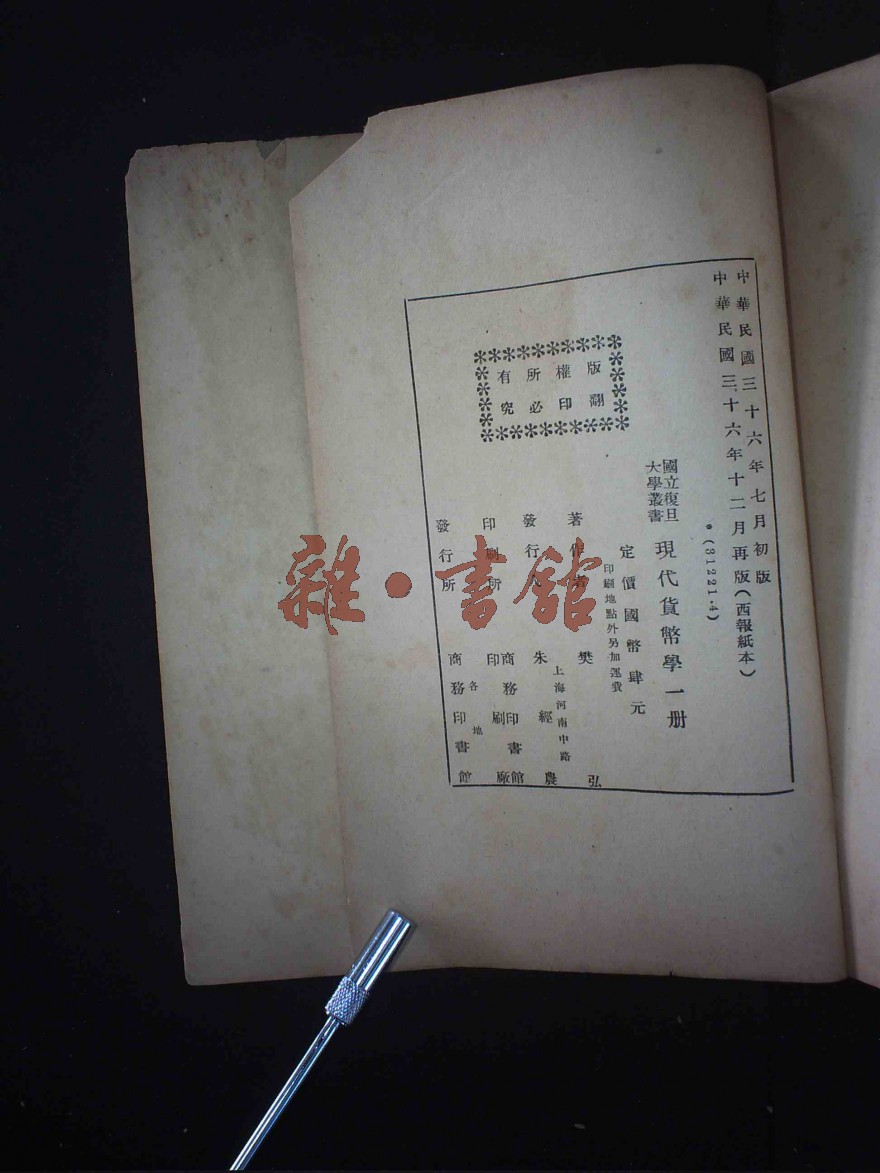 中華民國三十六年七月初版
中華民國三十六年十二月再版(西報紙本)
•(31221·4)
國立復旦大學叢書
現代貨幣學一册
定價國幣肆元
印刷地點外另加運費
著作者 樊弘
發行人 朱經農
上海河南中路
印刷所 商務印書館印刷廠
發行所 商務印書館
各地
版權所有
翻印必究
雜·書館